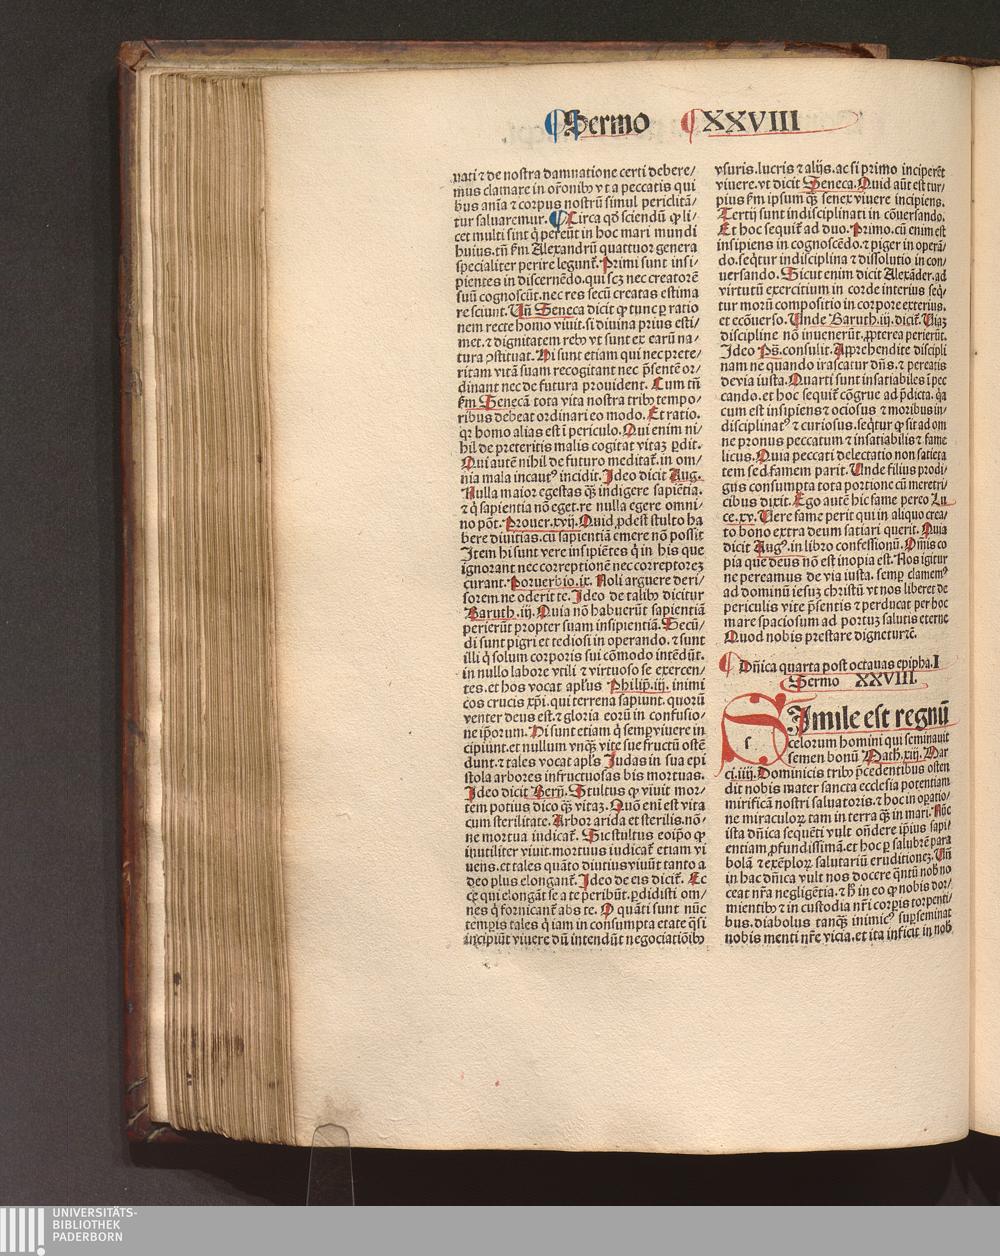 Sermo XXVIII
nati ⁊ de nostra damnatione certi debere/
mus clamare in orõnibꝰ vt a peccatis qui
bus aĩa ⁊ corpus nostrũ simul periclitã/
tur saluaremur. ¶ Circa qð sciendũ ꝙ li/
cet multi sint q̇ pereũt in hoc mari mundi
huius. tñ ẜm Alexandrũ quattuor genera
specialiter perire leguntᷣ. Primi sunt insi/
pientes in discernẽdo. qui scꝫ nec creatorẽ
suũ cognoscũt. nec res secũ creatas estima
re sciunt. Uñ Seneca dicit ꝙ tunc ꝑ ratio
nem recte homo viuit. si diuina prius esti/
met. ⁊ dignitatem reꝝ vt sunt ex earũ na/
tura ꝯstituat. Hi sunt etiam qui nec prete/
ritam vitã suam recogitant nec p̃sentẽ or/
dinant nec de futura prouident. Cum tñ
ẜm Senecã tota vita nostra tribꝰ tempo/
ribus debeat ordinari eo modo. Et ratio.
qꝛ homo alias est ĩ periculo. Qui enim ni/
hil de preteritis malis cogitat vitaꝫ ꝑdit.
Qui autẽ nihil de futuro meditatᷣ. in om/
nia mala incautꝰ incidit. Ideo dicit Aug.
Nulla maior egestas q̃ꝫ indigere sapiẽtia.
⁊ q̇ sapientia nõ eget. re nulla egere omni/
no põt. Prouer. xvij. Quid ꝓdest stulto ha
bere diuitias. cũ sapientiã emere nõ possit
Item hi sunt vere insipiẽtes q̇ in his que
ignorant nec correptionẽ nec correptoreꝫ
curant. Poruerbio. ix. Noli arguere deri/
sorem ne oderit te. Ideo de talibꝰ dicitur
Baruth. iij. Quia nõ habuerũt sapientiã
perierũt propter suam insipientiã. Secũ/
di sunt pigri et tediosi in operando. ⁊ sunt
illi q̇ solum corporis sui cõmodo intẽdũt.
in nullo labore vtili ⁊ virtuoso se exercen/
tes. et hos vocat apĺus Philip̃. iij. inimi
cos crucis xp̃i. qui terrena sapiunt. quorũ
venter deus est. ⁊ gloria eorũ in confusio/
ne ip̃orum. Hi sunt etiam q̇ semꝑ viuere in
cipiunt. et nullum vnq̃ꝫ vite sue fructũ ostẽ
dunt. ⁊ tales vocat apĺs Judas in sua epi
stola arbores infructuosas bis mortuas.
Ideo dicit Berñ. Stultus ꝙ viuit mor/
tem potius dico q̃ꝫ vitaꝫ. Quõ eni est vita
cum sterilitate. Arbor arida et sterilis. nõ/
ne mortua iudicatᷣ. Sic stultus eoip̃o ꝙ
inutiliter viuit. mortuus iudicatᷣ etiam vi
uens. et tales quãto diutius viuũt tanto a
deo plus elongantᷣ. Ideo de eis dicitᷣ. Ec
ce qui elongãt se a te peribũt. ꝑdidisti om/
nes q̇ fornicantᷣ abs te. O quãti sunt nũc
temꝑis tales q̇ iam in consumpta etate q̃si
incipiũt viuere dũ intendũt negociatiõibꝰ
vsuris. lucris ⁊ alijs. ac si primo inciperẽt
viuere. vt dicit Seneca. Quid aũt est tur/
pius ẜm ipsum q̃ꝫ senex viuere incipiens.
Tertij sunt indisciplinati in cõuersando.
Et hoc sequitᷣ ad duo. Primo. cũ enim est
insipiens in cognoscẽdo. ⁊ piger in operã/
do. seq̃tur indisciplina ⁊ dissolutio in con/
uersando. Sicut enim dicit Alexãder. ad
virtutũ exercitium in corde interius seq̃/
tur morũ compositio in corpore exterius.
et ecõuerso. Unde Baruth. iij. dicitᷣ. Uiaꝫ
discipline nõ inuenerũt. ꝓpterea perierũt.
Ideo Ps̃. consulit. Apprehendite discipli
nam ne quando irascatur dñs. ⁊ pereatis
de via iusta. Quarti sunt insatiabiles ĩ pec
cando. et hoc sequitᷣ cõgrue ad p̃dicta. q̇a
cum est insipiens ⁊ ociosus ⁊ moribus in/
disciplinatꝰ ⁊ curiosus. seq̃tur ꝙ sit ad om
ne pronus peccatum ⁊ insatiabilis ⁊ fame
licus. Quia peccati delectatio non satieta
tem sed famem parit. Unde filius prodi/
gus consumpta tota portione cũ meretri/
cibus dixit. Ego autẽ hic fame pereo Lu
ce. xv. Uere fame perit qui in aliquo crea/
to bono extra deum satiari querit. Quia
dicit Augꝰ. in libro confessionũ. Om̃is co
pia que deus nõ est inopia est. Nos igitur
ne pereamus de via iusta. semꝑ clamemꝰ
ad dominũ iesuꝫ christũ vt nos liberet de
periculis vite p̃sentis ⁊ perducat per hoc
mare spaciosum ad portuꝫ salutis eterne
Quod nobis prestare dignetur ⁊cẽ.
¶ Dñica quarta post octauas epipha. I
Sermo XXVIII.
SImile est regnũ
celorum homini qui seminauit
semen bonũ Math. xiij. Mar
ci. iiij. Dominicis tribꝰ p̃cedentibus osten
dit nobis mater sancta ecclesia potentiam
mirificã nostri saluatoris. ⁊ hoc in oꝑatio/
ne miraculoꝝ tam in terra q̃ꝫ in mari. Nũc
ista dñica sequẽti vult oñdere ip̃ius sapi/
entiam ꝓfundissimã. et hoc ꝑ salubrẽ para
bolã ⁊ exẽploꝝ salutariũ eruditioneꝫ. Uñ
in hac dñica vult nos docere q̃ntũ nob̃ no
ceat nr̃a negligẽtia. ⁊ ꝑ̃ in eo ꝙ nobis dor/
mientibꝰ ⁊ in custodia nr̃i corꝑis torpenti/
bus. diabolus tanq̃ꝫ inimicꝰ suꝑseminat
nobis menti nr̃e vicia. et ita inficit in nob̃
UNIVERSITÄTS-
BIBLIOTHEK
PADERBORN